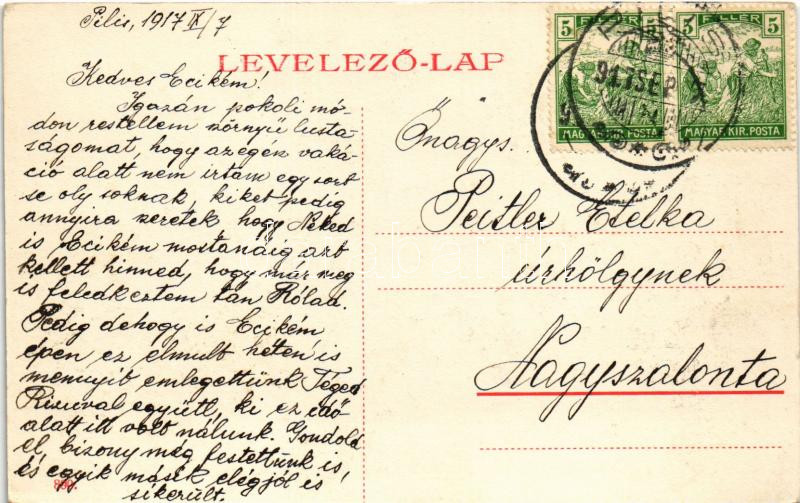 Pilis, 1917 IX/7
LEVELEZŐ-LAP
Kedves Ecikém!
Igazán pokoli mó-
don restellem szörnyű lusta-
ságomat, hogy az egén vaká-
ció alatt nem irtam egy sort
se oly soknak, kiket pedig
annyira szeretek hogy Neked
is Ecikém mostanáig azt
kellett hinned, hogy már meg
is feledkeztem tán Rólad.
Pedig dehogy is Ecikém
épen ez elmult héten is
mennyit emlegettünk Téged
Rizuval együtt, ki ez idő
alatt itt volt nálunk. Gondold
el, bizony meg festettünk is,
és egyik másik elégjól is
sikerült.
890.
5 FILLÉR 5
MAGYAR KIR. POSTA
5 FILLÉR 5
MAGYAR KIR. POSTA
917 SEP
Önagys.
Peitler Etelka
úrhölgynek
Nagyszalonta